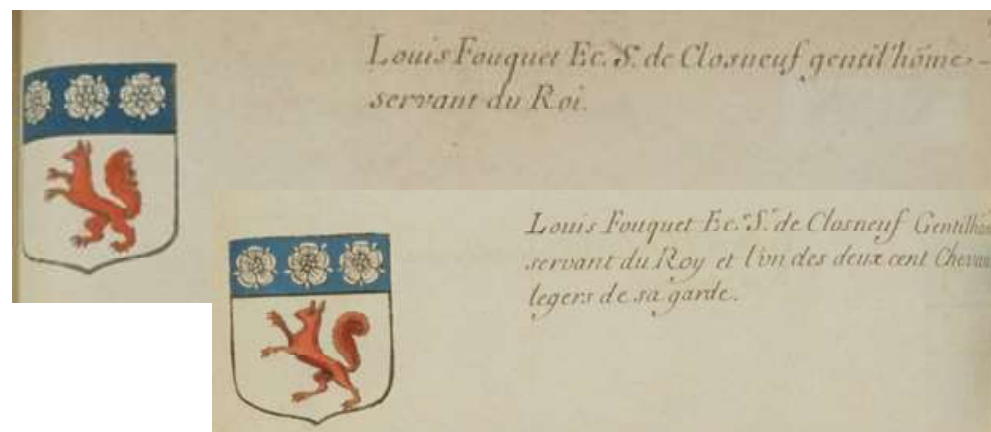 Louis Fouquet Ec. S. de Closneuf gentil'hōme-
servant du Roi.
Louis Fouquet Ec. S. de Closneuf Gentilhom
servant du Roy et l'vn des deux cent Chevau
legers de sa garde.